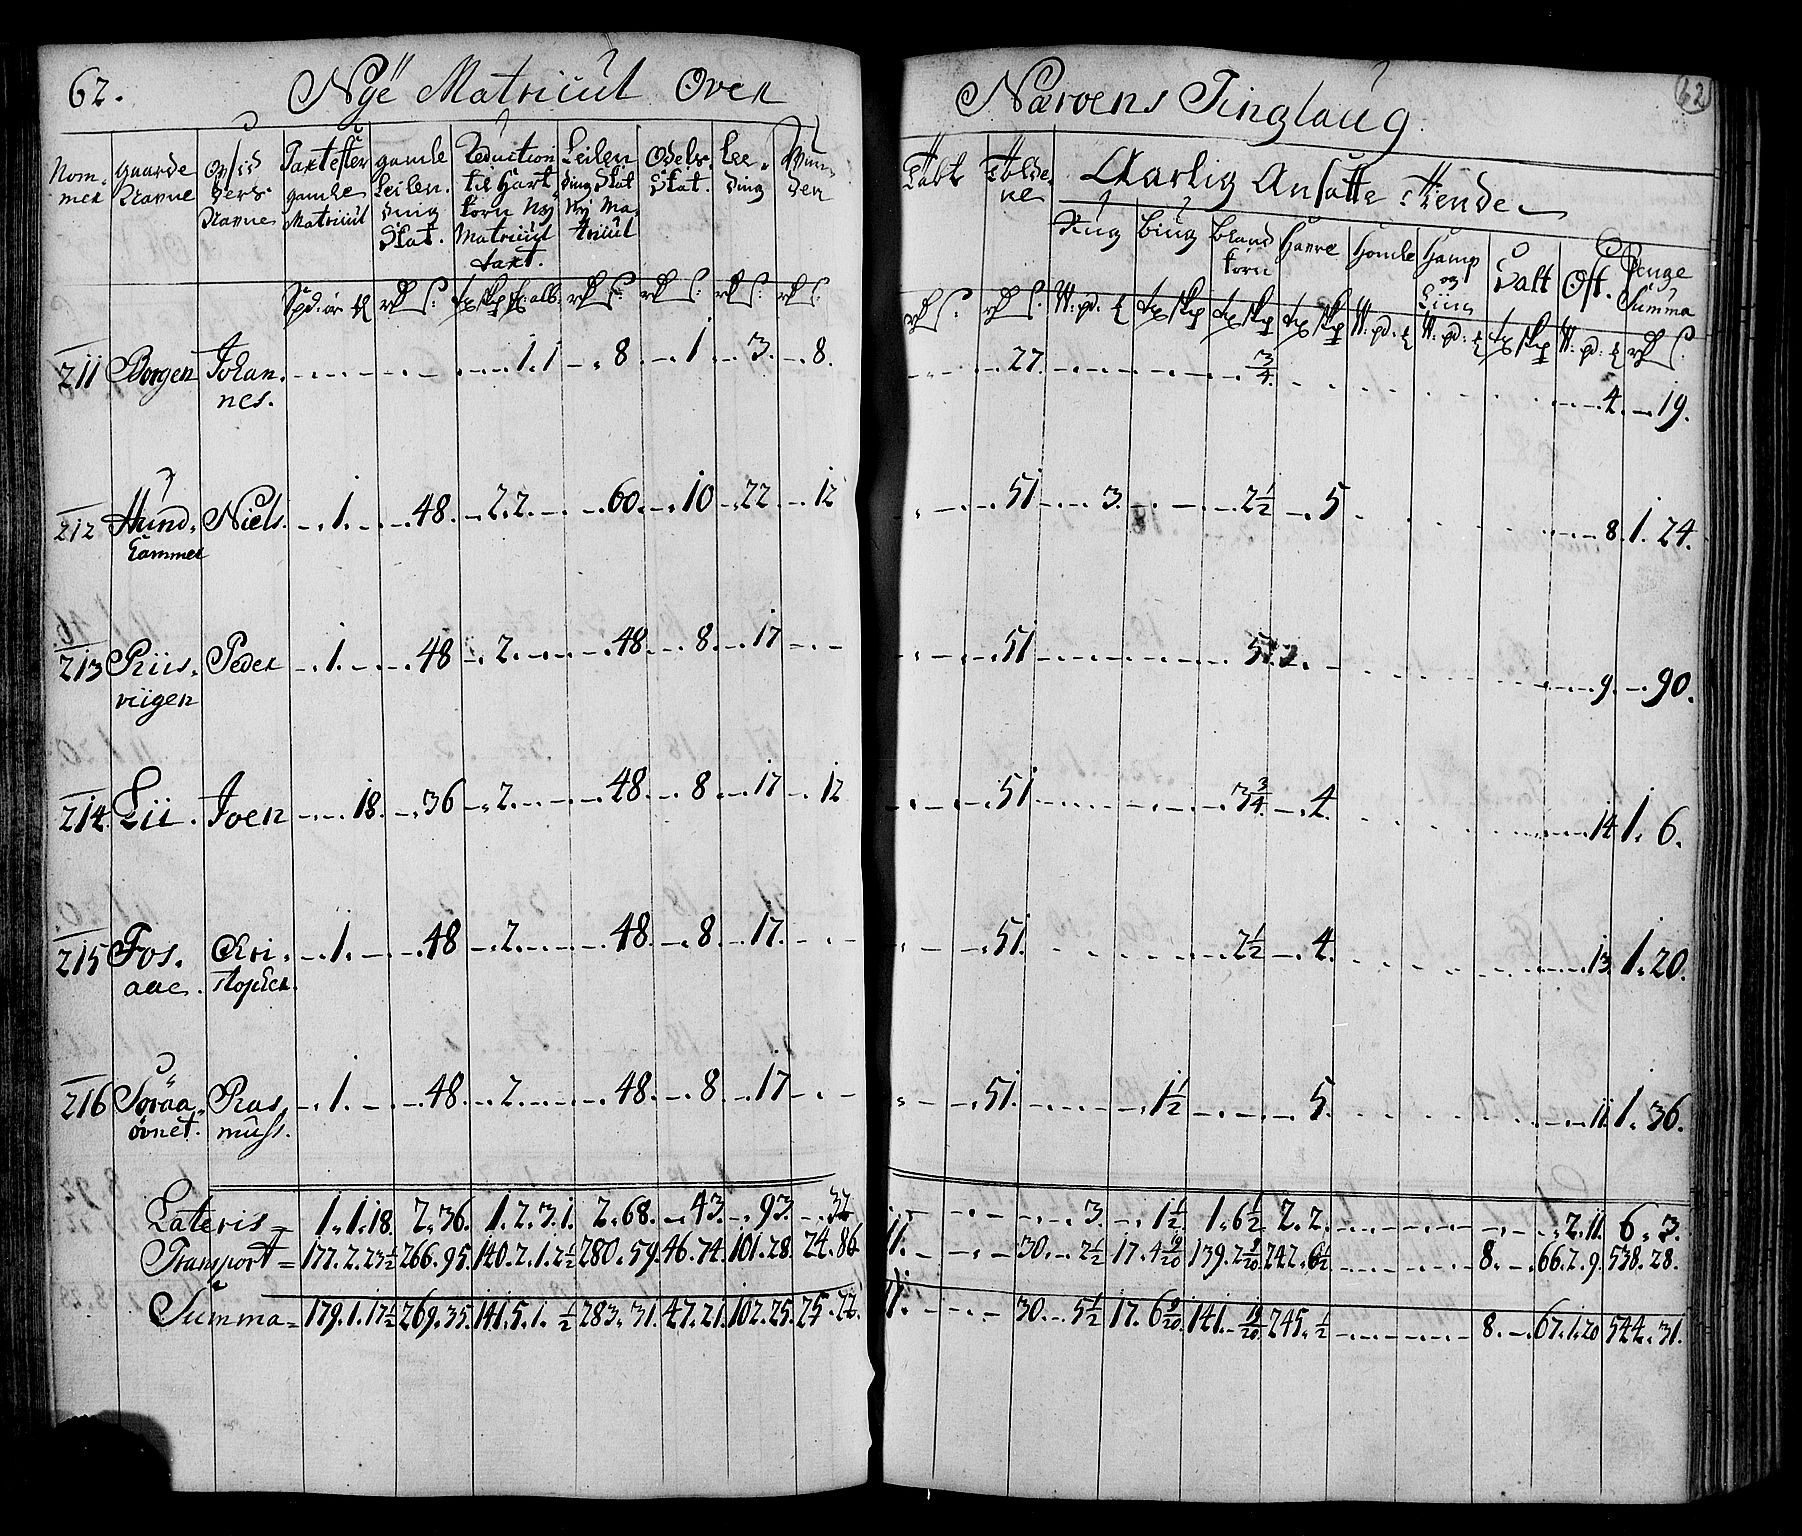 62. Nÿe Matricul Over Nærvens Tinglaug. 62
Nom-mer | gaarde Navne | Opsid ders Navne | Taxt efter gamle Matricul | gamle Leilen-ding Skat. | Reduction til Hart korn Nÿ Matricul taxt. | Leilen ding Skat Nÿ Ma-tricul | Odels Skat. | Lee-ding | | | Aarlig Ansatte Tiende
Rug | Biug | bland korn | Havre | Homle | Hamp og Liin | Salt | Ost. | Penge Summa
211 Borgen Johan-nes. 1.1 8. 1 3. 8. 27. 3/4. 4. 19.
212 Hund-hammer Niels. 1. 48. 2.2. 60. 10 22 12 51 3. 2 1/2 5 8. 1. 24.
213 Riis-viigen Peder 1. 48 2. 48. 8. 17 51 9. 90.
214. Lii. Joen 18. 36 2. 48. 8 17 12 51 3 3/4. 4. 14 1. 6.
215 Fos-aae. Chri-stopher. 1. 48 2. 48. 8. 17. 51. 2 1/2 4. 13. 1. 20.
216 Søraa-øvnet. Ras-muss. 1. 48. 2. 48. 8 17 51. 1 1/2 5. 11. 1. 36.
Lateris = 1. 1. 18. 2. 36. 1. 2. 3. 1. 2. 68. 43. 93. 32 3. 1 1/2. 1. 6 1/2 2. 2. 2. 11. 6. 3.
Transport = 177. 2. 23 1/2 266. 95. 140. 2. 1. 2 1/2 280. 59. 46. 74. 101. 28. 24. 86 11. 30. 2 1/2 17. 4 9/20 139. 2 9/20 242. 6 1/2 8. 66. 2. 9. 538. 28.
Summa = 179. 1. 17 1/2 269. 35. 141. 5. 1. 1/2 283. 31. 47. 21. 102. 25. 25. 22. 11. 30. 5 1/2 17. 6 9/20. 141. 19/20 245. 1/2 8. 67. 1. 20 544. 31.